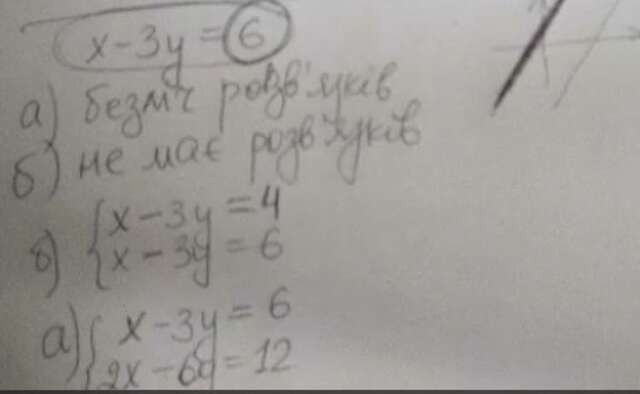 x - 3y = 6
а) безліч розв'язків
б) не має розв'язків
б) { x - 3y = 4
x - 3y = 6
а) { x - 3y = 6
2x - 6y = 12